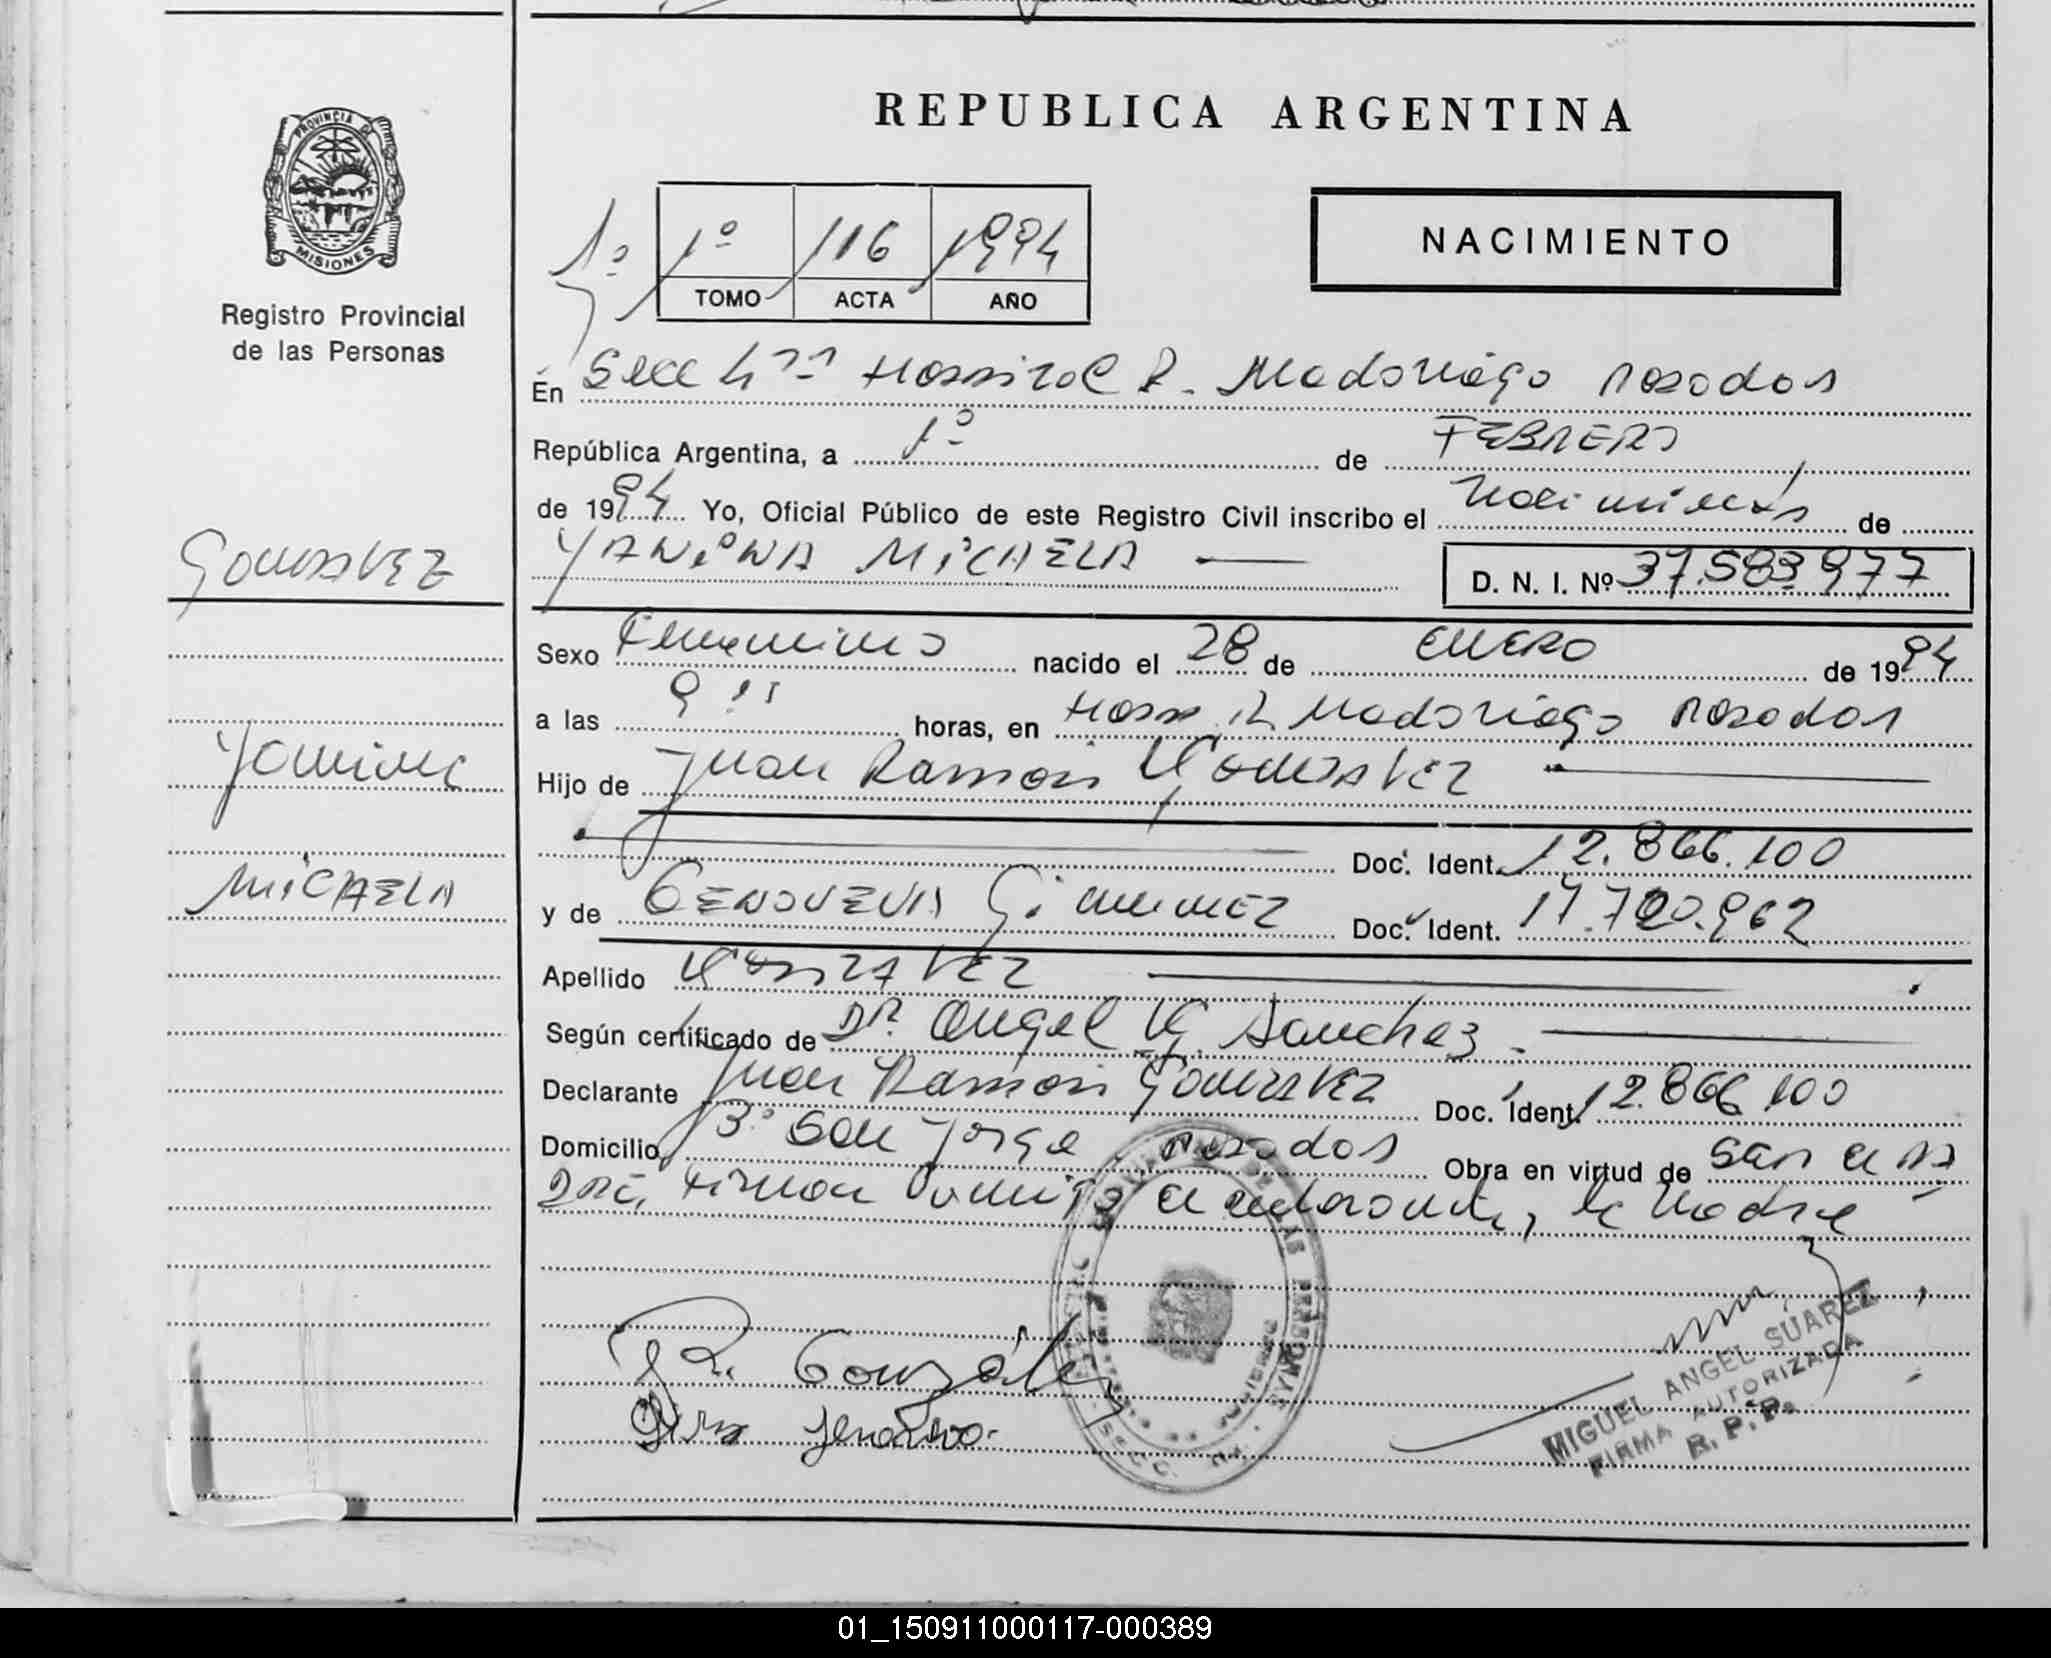 REPUBLICA ARGENTINA
PROVINCIA DE
MISIONES
Registro Provincial
de las Personas
1º
1º 116 1994
TOMO ACTA AÑO
NACIMIENTO
En Secc 4ta Hospital R. Madariaga Posadas
República Argentina, a 1º de FEBRERO
de 1994 Yo, Oficial Público de este Registro Civil inscribo el Nacimiento de
YANINA MICAELA D. N. I. Nº 37.583.977
GONZALEZ
Sexo Femenino nacido el 28 de ENERO de 1994
a las horas, en Hosp. R. Madariaga Posadas
Yanina
Hijo de Juan Ramon GONZALEZ
Doc. Ident. 12.866.100
MICAELA
y de GENOVEVA Gimenez Doc. Ident. 17.720.962
Apellido GONZALEZ
Según certificado de DR. Angel G. Sanchez
Declarante Juan Ramon GONZALEZ Doc. Ident. 12.866.100
Domicilio Bº San Jorge Posadas Obra en virtud de
Firman conmigo el declarante, la Madre
R. González
MIGUEL ANGEL SUAREZ
FIRMA AUTORIZADA
R. P. P.
01_150911000117-000389